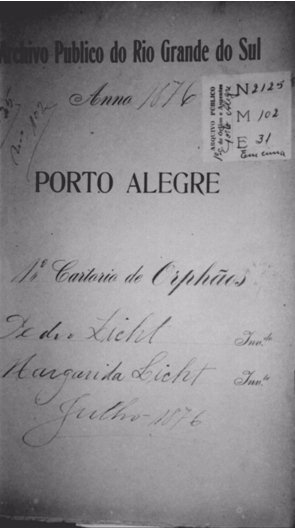 Archivo Publico do Rio Grande do Sul
Anno 1876
ARQUIVO PÚBLICO
N 2125
M 102
E 31
PORTO ALEGRE
1º Cartorio de Orphãos
Pedro Licht Inv.do
Margarida Licht Inv.te
Julho 1876